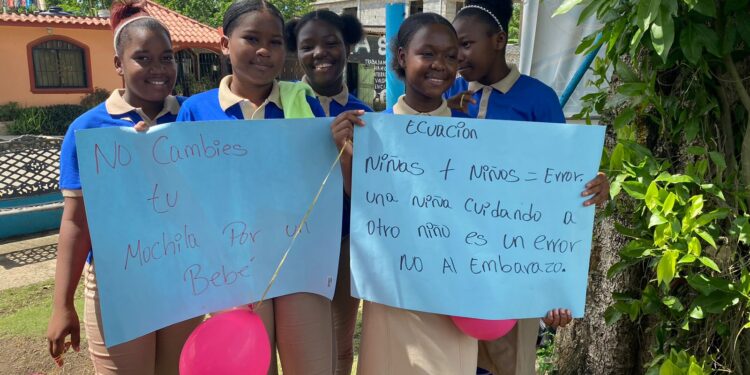 No Cambies
tu
Mochila Por un
Bebé
ECUACION
Niñas + Niños = Error.
una niña cuidando a
otro niño es un error
No Al Embarazo.